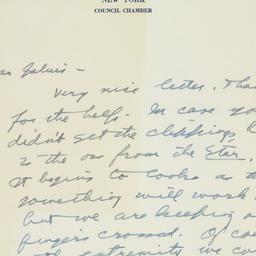 NEW YORK
COUNCIL CHAMBER
Very nice letter. Than
for the help. In case yo
didn't get the clippings, h
is the one from the Star.
It begins to look as th
something will work
but we are keeping o
fingers crossed. Of co
extremity we co